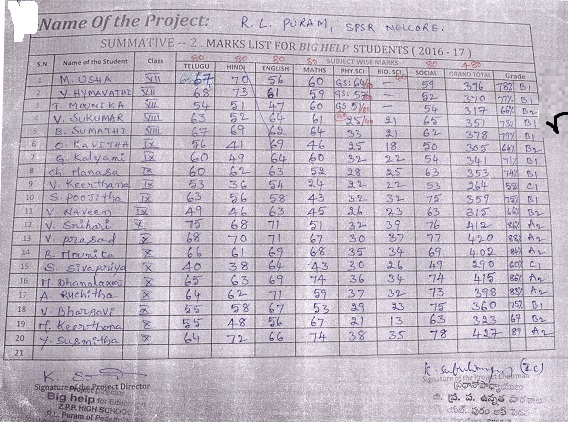 Name Of the Project: R. L. PURAM, SPSR NELLORE.
SUMMATIVE -- 2. MARKS LIST FOR BIG HELP STUDENTS ( 2016 - 17 )
80 80 80 80 80 80 480
S.N Name of the Student Class SUBJECT WISE MARKS
TELUGU HINDI ENGLISH MATHS PHY.SCI BIO. SCI SOCIAL GRAND TOTAL Grade
1 M. USHA VII 67 70 56 60 GS: 64 — 59 376 78% B1
2 Y. HYMAVATHI VII 68 73 61 59 GS: 57 — 52 370 77% B1
3 T. MOUNIKA VII 54 51 47 60 GS 51 — 54 317 66% B2
4 V. SUKUMAR VIII 63 52 64 61 25 21 65 351 73% B1
5 B. SUMATHI VIII 67 69 62 64 33 21 62 378 79% B1
6 O. KAVITHA IX 56 41 69 46 25 18 50 305 64% B2
7 G. Kalyani IX 60 49 64 60 32 22 54 341 71% B1
8 Ch. Manasa IX 60 62 63 52 28 25 63 353 74% B1
9 V. Keerthana IX 53 36 54 24 22 22 53 264 55% C1
10 S. Poojitha IX 63 56 58 43 32 32 75 359 75% B1
11 V. Naveen IX 49 46 63 45 26 23 63 315 66% B2
12 V. Srihari X 75 68 71 51 32 39 76 412 86% A2
13 V. prasad X 68 70 71 67 30 37 77 420 88% A2
14 B. Mounica X 66 61 69 68 35 34 69 402 84% A2
15 S. Sivapriya X 40 38 64 43 30 26 49 290 60% C1
16 M Dhanalaxmi X 65 63 69 74 36 34 74 415 86% A2
17 A. Ruchitha X 64 62 71 59 37 32 73 398 83% A2
18 V. Bhargavi X 55 58 67 53 29 23 75 360 75% B1
19 M. Keerthana X 55 48 56 67 21 13 63 323 67 B2
20 Y. Susmitha X 64 72 66 74 38 35 78 427 89 A2
21
Signature of the Project Director
Big help for Education
Z.P.P. HIGH SCHOOL
Signature of the